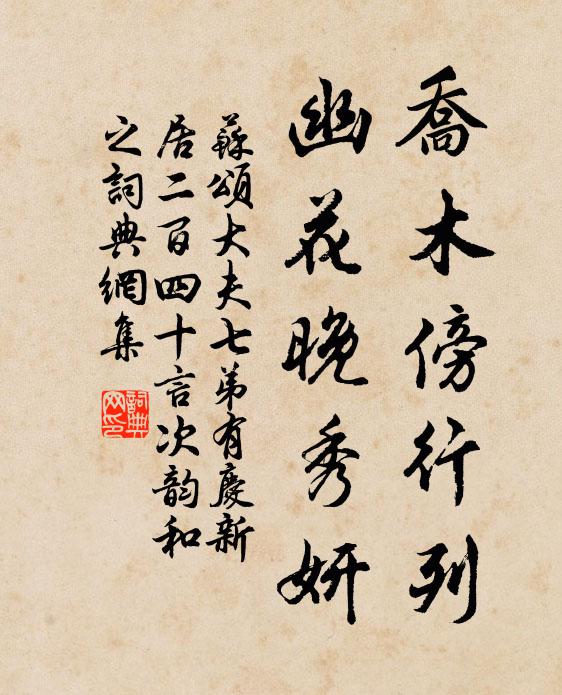 喬木傍行列
幽花晚秀妍
蘇頌大夫七弟有慶新
居二百四十言次韵和
之詞典網集
詞典网印